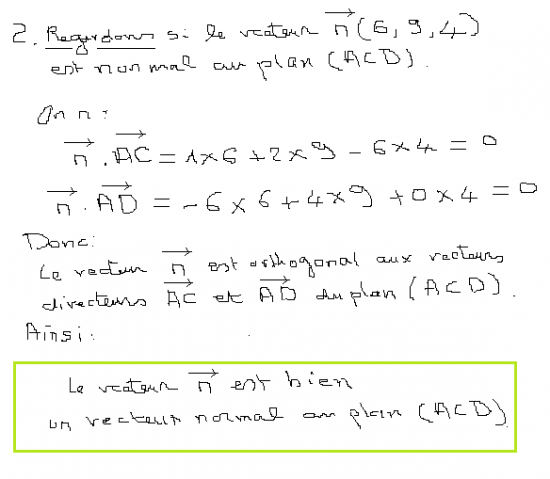 2. Regardons si le vecteur n(6, 9, 4)
est normal au plan (ACD).
On a :
n . AC = 1×6 + 2×9 - 6×4 = 0
n . AD = -6×6 + 4×9 + 0×4 = 0
Donc:
Le vecteur n est orthogonal aux vecteurs
directeurs AC et AD du plan (ACD).
Ainsi:
Le vecteur n est bien
un vecteur normal au plan (ACD)